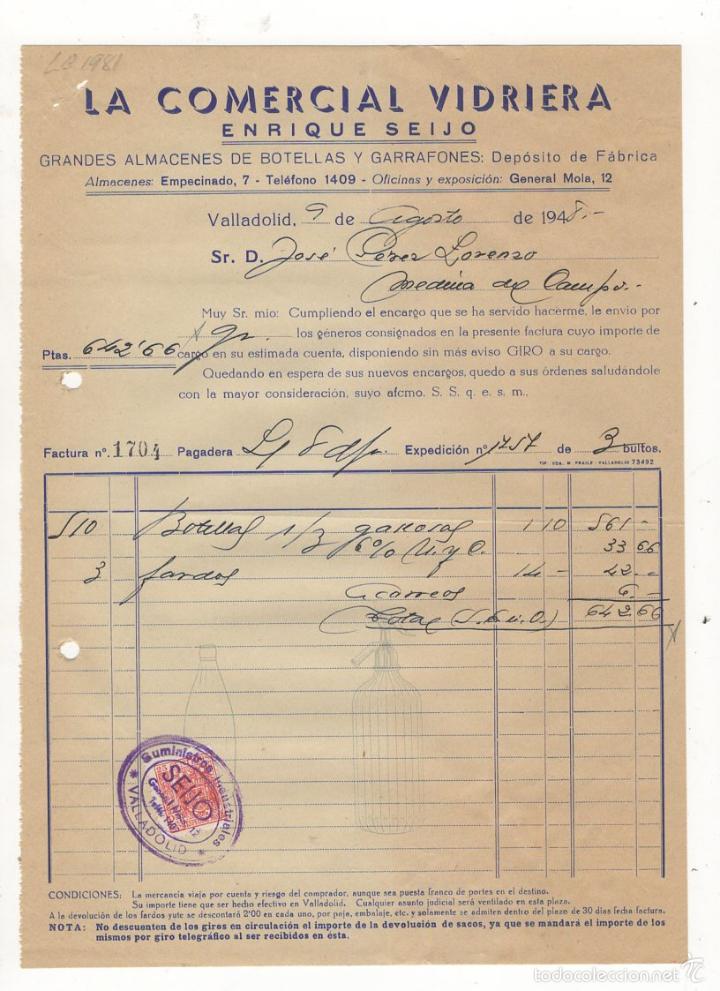 LB 1981
LA COMERCIAL VIDRIERA
ENRIQUE SEIJO
GRANDES ALMACENES DE BOTELLAS Y GARRAFONES: Depósito de Fábrica
Almacenes: Empecinado, 7 - Teléfono 1409 - Oficinas y exposición: General Mola, 12
Valladolid, 9 de Agosto de 1948.-
Sr. D. José Perez Lorenzo
Medina del Campo.-
Muy Sr. mio: Cumpliendo el encargo que se ha servido hacerme, le envio por
los géneros consignados en la presente factura cuyo importe de
Ptas. 642'66 cargo en su estimada cuenta, disponiendo sin más aviso GIRO a su cargo.
Quedando en espera de sus nuevos encargos, quedo a sus órdenes saludándole
con la mayor consideración, suyo afcmo. S. S. q. e. s. m.,
Factura nº. 1704 Pagadera 8 d/f. Expedición nº. 1757 de 3 bultos.
TIP. VDA. M. FRAILE - VALLADOLID 73492
510 Botellas 1/3 gaseosas 1 10 561 -
6% U. y C. 33 66
3 fardos 14 - 42 -
Acarreos 6. -
Total (S. E. u. O.) 642.66
Suministros Industriales
SEIJO
General Mola, 12
Teléf. 1409
* VALLADOLID *
CONDICIONES: La mercancia viaja por cuenta y riesgo del comprador, aunque sea puesta franco de portes en el destino.
Su importe tiene que ser hecho efectivo en Valladolid. Cualquier asunto judicial será ventilado en esta plaza.
A la devolución de los fardos yute se descontará 2'00 en cada uno, por paja, embalaje, etc. y solamente se admiten dentro del plazo de 30 días fecha factura.
NOTA: No descuenten de los giros en circulación el importe de la devolución de sacos, ya que se mandará el importe de los
mismos por giro telegráfico al ser recibidos en ésta.
todocoleccion.net